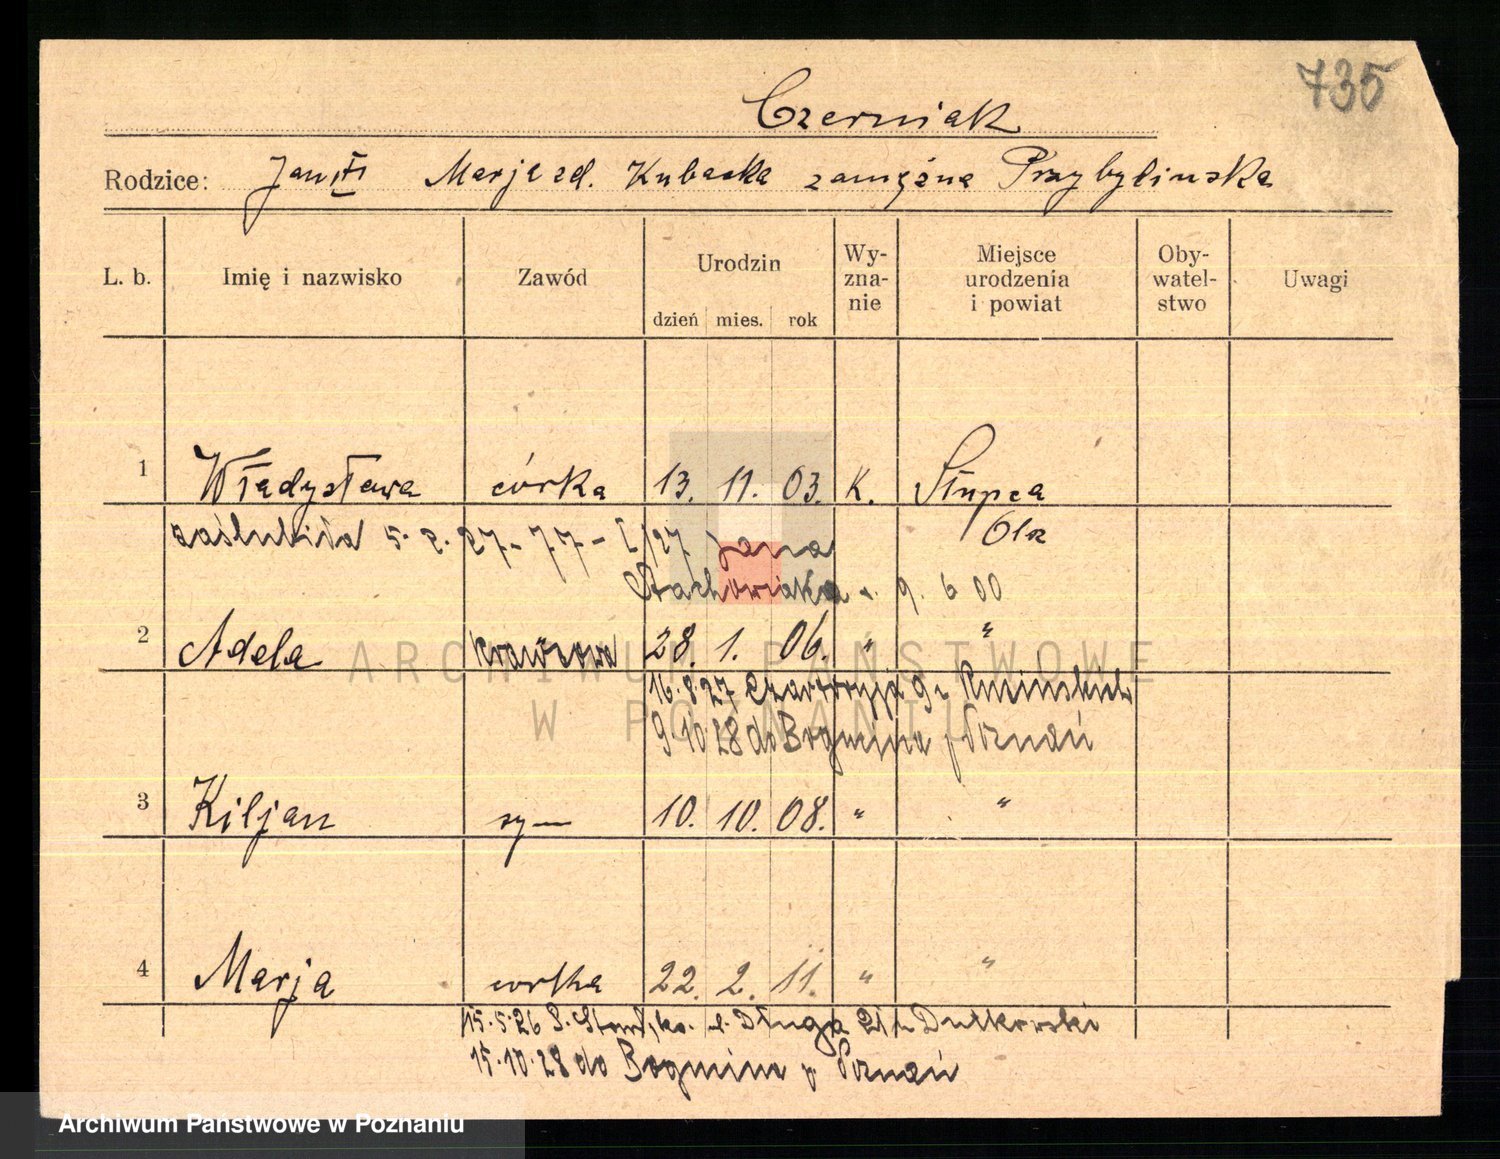 735
Czerniak
Rodzice: Jan Marja zd. Kubacka zamężna Przybylinska
L. b. Imię i nazwisko Zawód Urodzin dzień mies. rok Wy-zna-nie Miejsce urodzenia i powiat Oby-watel-stwo Uwagi
1 Władysława córka 13. 11. 03. K. Słupca
zaślubiła 5. 2. 27 - 77 - I/27 Jana
Stachowiaka 9. 6 00
2 Adela krawcowa 28. 1. 06. " "
16.8.27 9
9.10.28 do Bogmina p Poznań
3 Kiljan syn 10. 10. 08. " "
4 Marja córka 22. 2. 11. " "
15.5.26 Długa Dutkowski
15.10.28 do Bogmina p Poznań
ARCHIWUM PAŃSTWOWE
W POZNANIU
Archiwum Państwowe w Poznaniu